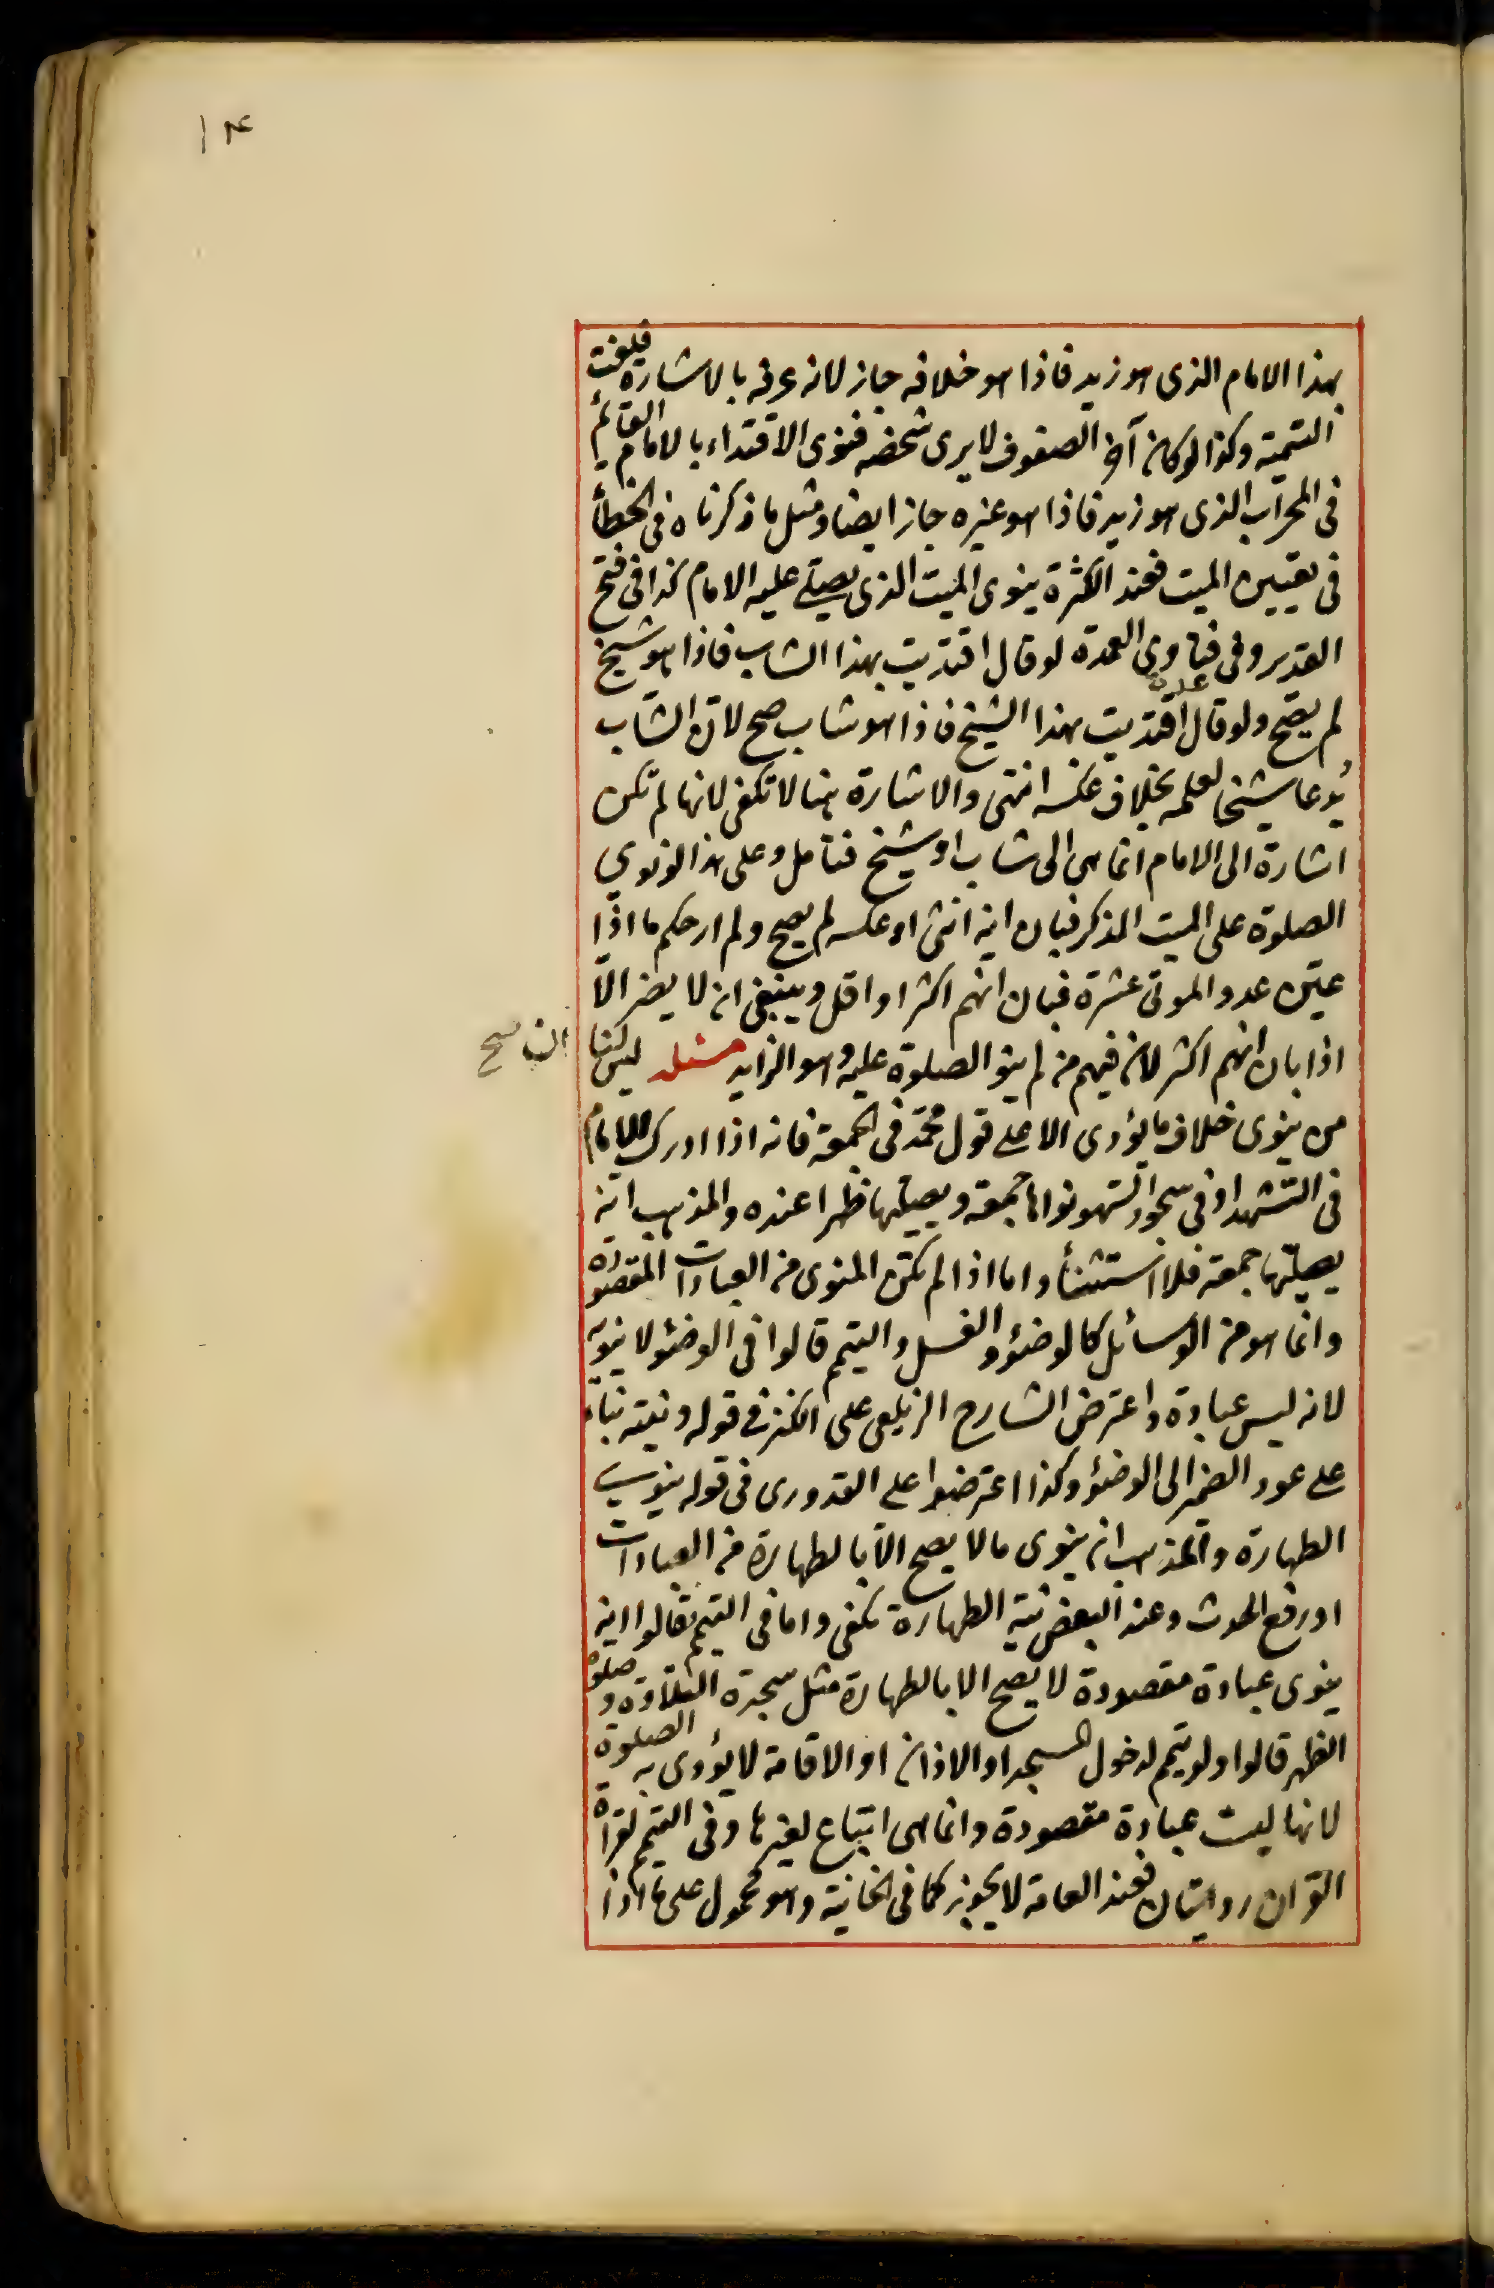 ١٤
بهذا الامام الذى هو زيد فاذا هو خلافه جاز لانه عرفه بالاشارة فلغت
التسمية وكذا لو كان آخر الصفوف لا يرى شخصه فنوى الاقتداء بالامام القائم
فى المحراب الذى هو زيد فاذا هو غيره جاز ايضا ومثل ما ذكرناه فى الخطأ
فى تعيين الميت فعند الكثرة ينوى الميت الذى يصلى عليه الامام كذا فى فتح
القدير وفى فتاوى العمدة لو قال اقتديت بهذا الشاب فاذا هو شيخ
لم يصح ولو قال اقتديت بهذا الشيخ فاذا هو شاب صح لان الشاب
يدعا شيخا لعلمه بخلاف عكسه انتهى والاشارة هنا لا تكفى لانها لم تكن
اشارة الى الامام انما هى الى شاب او شيخ فتأمل وعلى هذا لو نوى
الصلوة على الميت المذكر فبان انه انثى او عكسه لم يصح ولم ار حكم ما اذا
عين عدد الموتى عشرة فبان انهم اكثر او اقل وينبغى ان لا يضر الا
اذا بان انهم اكثر لان فيهم من لم ينو الصلوة عليه وهو الزايد مسئله ليس لنا
ان صح
من ينوى خلاف ما يؤدى الا على قول محمد فى الجمعة فانه اذا ادرك الامام
فى التشهد او فى سجود السهو نواها جمعة ويصليها ظهرا عنده والمذهب انه
يصليها جمعة فلا استثنأ واما اذا لم تكن المنوى من العبادات المقصودة
وانما هو من الوسائل كالوضؤ والغسل والتيمم قالوا فى الوضؤ لا ينويه
لانه ليس عبادة واعترض الشارح الزيلعى على الكنز فى قوله ونيته بناء
على عود الضمير الى الوضؤ وكذا اعترضوا على القدورى فى قوله ينوى
الطهارة والمذهب ان ينوى ما لا يصح الا بالطهارة من العبادات
او رفع الحدث وعند البعض نية الطهارة تكفى واما فى التيمم فقالوا انه
ينوى عبادة مقصودة لا يصح الا بالطهارة مثل سجدة التلاوة وصلوة
الظهر قالوا ولو تيمم لدخول المسجد او الاذان او الاقامة لا يؤدى به الصلوة
لانها ليست عبادة مقصودة وانما هى اتباع لغيرها وفى التيمم لقراة
القران روايتان فعند العامة لا يجوز كما فى الخانية وهو محمول على ما اذا